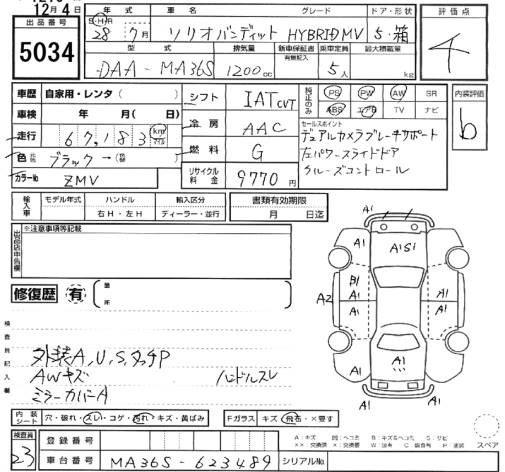 12月4日
出品番号
5034
年式 車名 グレード ドア・形状
S・H・R
28年7月 ソリオバンディット HYBRIDMV 5・箱
型式 排気量 新車保証書 乗車定員 最大積載量
有無記入
DAA-MA36S 1200cc 5人 kg
評価点
4
車歴 自家用・レンタ ( )
車検 年 月 ( 日)
走行 67,183 km マイル
色 ブラック→
カラーNo ZMV
シフト IAT CVT
冷房 AAC
燃料 G
リサイクル料金 9770円
純正のみ PS PW AW SR
ABS エアB TV ナビ
セールスポイント
デュアルカメラブレーキサポート
左パワースライドドア
クルーズコントロール
内装評価
b
輸入車 モデル年式 ハンドル 輸入区分
右H・左H ディーラー・並行
書類有効期限
月 日迄
出品店申告欄
※注意事項等記載
修復歴 有
箇所
検査員記入欄
外装A,U,S,タッチP
AWキズ ハンドルスレ
ミラーカバーA
A1 A1
A1S1
A1 A1
B1 A1
A2 A1 A1
A1 A1
A1
A1
内装シート 穴・破れ・スレ・コゲ・汚れ・キズ・黄ばみ
Fガラス キズ・飛石・×要す
スペア
検査員
23
登録番号
車台番号 MA36S-623489 シリアルNo.